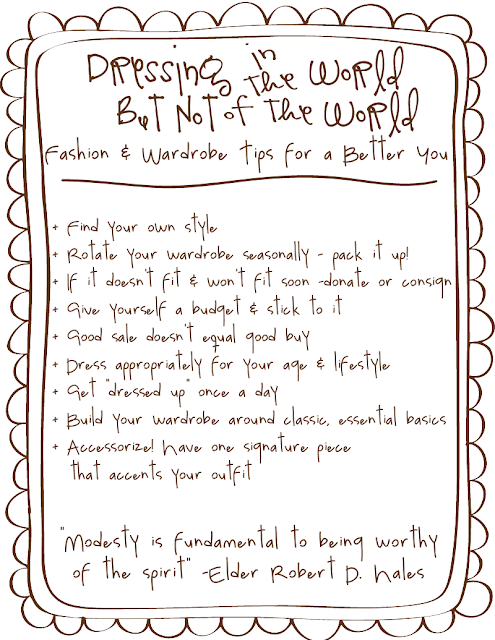 Dressing in the World
But Not of the World
Fashion & Wardrobe tips for a Better you
+ Find your own style
+ Rotate your wardrobe seasonally - pack it up!
+ If it doesn't fit & won't fit soon -donate or consign
+ Give yourself a budget & stick to it
+ Good sale doesn't equal good buy
+ Dress appropriately for your age & lifestyle
+ Get "dressed up" once a day
+ Build your wardrobe around classic, essential basics
+ Accessorize! Have one signature piece
that accents your outfit
"Modesty is fundamental to being worthy
of the spirit" -Elder Robert D. Hales